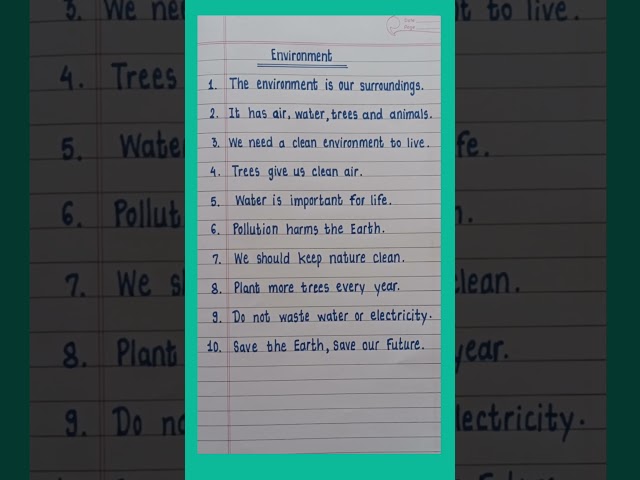 Environment
1. The environment is our surroundings.
2. It has air, water, trees and animals.
3. We need a clean environment to live.
4. Trees give us clean air.
5. Water is important for life.
6. Pollution harms the Earth.
7. We should keep nature clean.
8. Plant more trees every year.
9. Do not waste water or electricity.
10. Save the Earth, Save our Future.